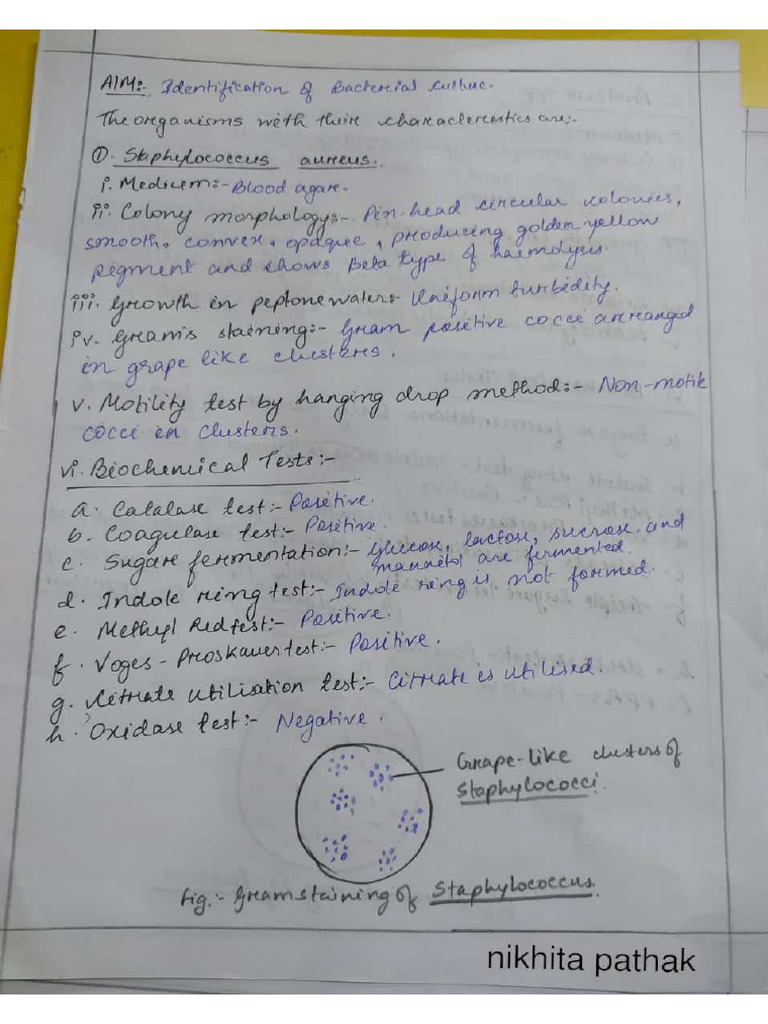 AIM:- Identification of Bacterial culture.
The organisms with their characteristics are:-
①. Staphylococcus aureus.
i. Medium:- Blood agar.
ii. Colony morphology:- Pin-head circular colonies,
smooth, convex, opaque, producing golden yellow
pigment and shows Beta type of haemolysis.
iii. Growth in peptone water:- Uniform turbidity.
iv. Gram's staining:- Gram positive cocci arranged
in grape like clusters.
v. Motility test by hanging drop method:- Non-motile
cocci in clusters.
vi. Biochemical Tests:-
a. Catalase test:- Positive.
b. Coagulase test:- Positive.
c. Sugar fermentation:- Glucose, lactose, sucrose and
mannitol are fermented.
d. Indole ring test:- Indole ring is not formed.
e. Methyl Red test:- Positive.
f. Voges-Proskauer test:- Positive.
g. Citrate utilisation test:- Citrate is utilised.
h. Oxidase test:- Negative.
Grape-like clusters of
Staphylococci.
Fig:- Gram staining of Staphylococcus.
nikhita pathak